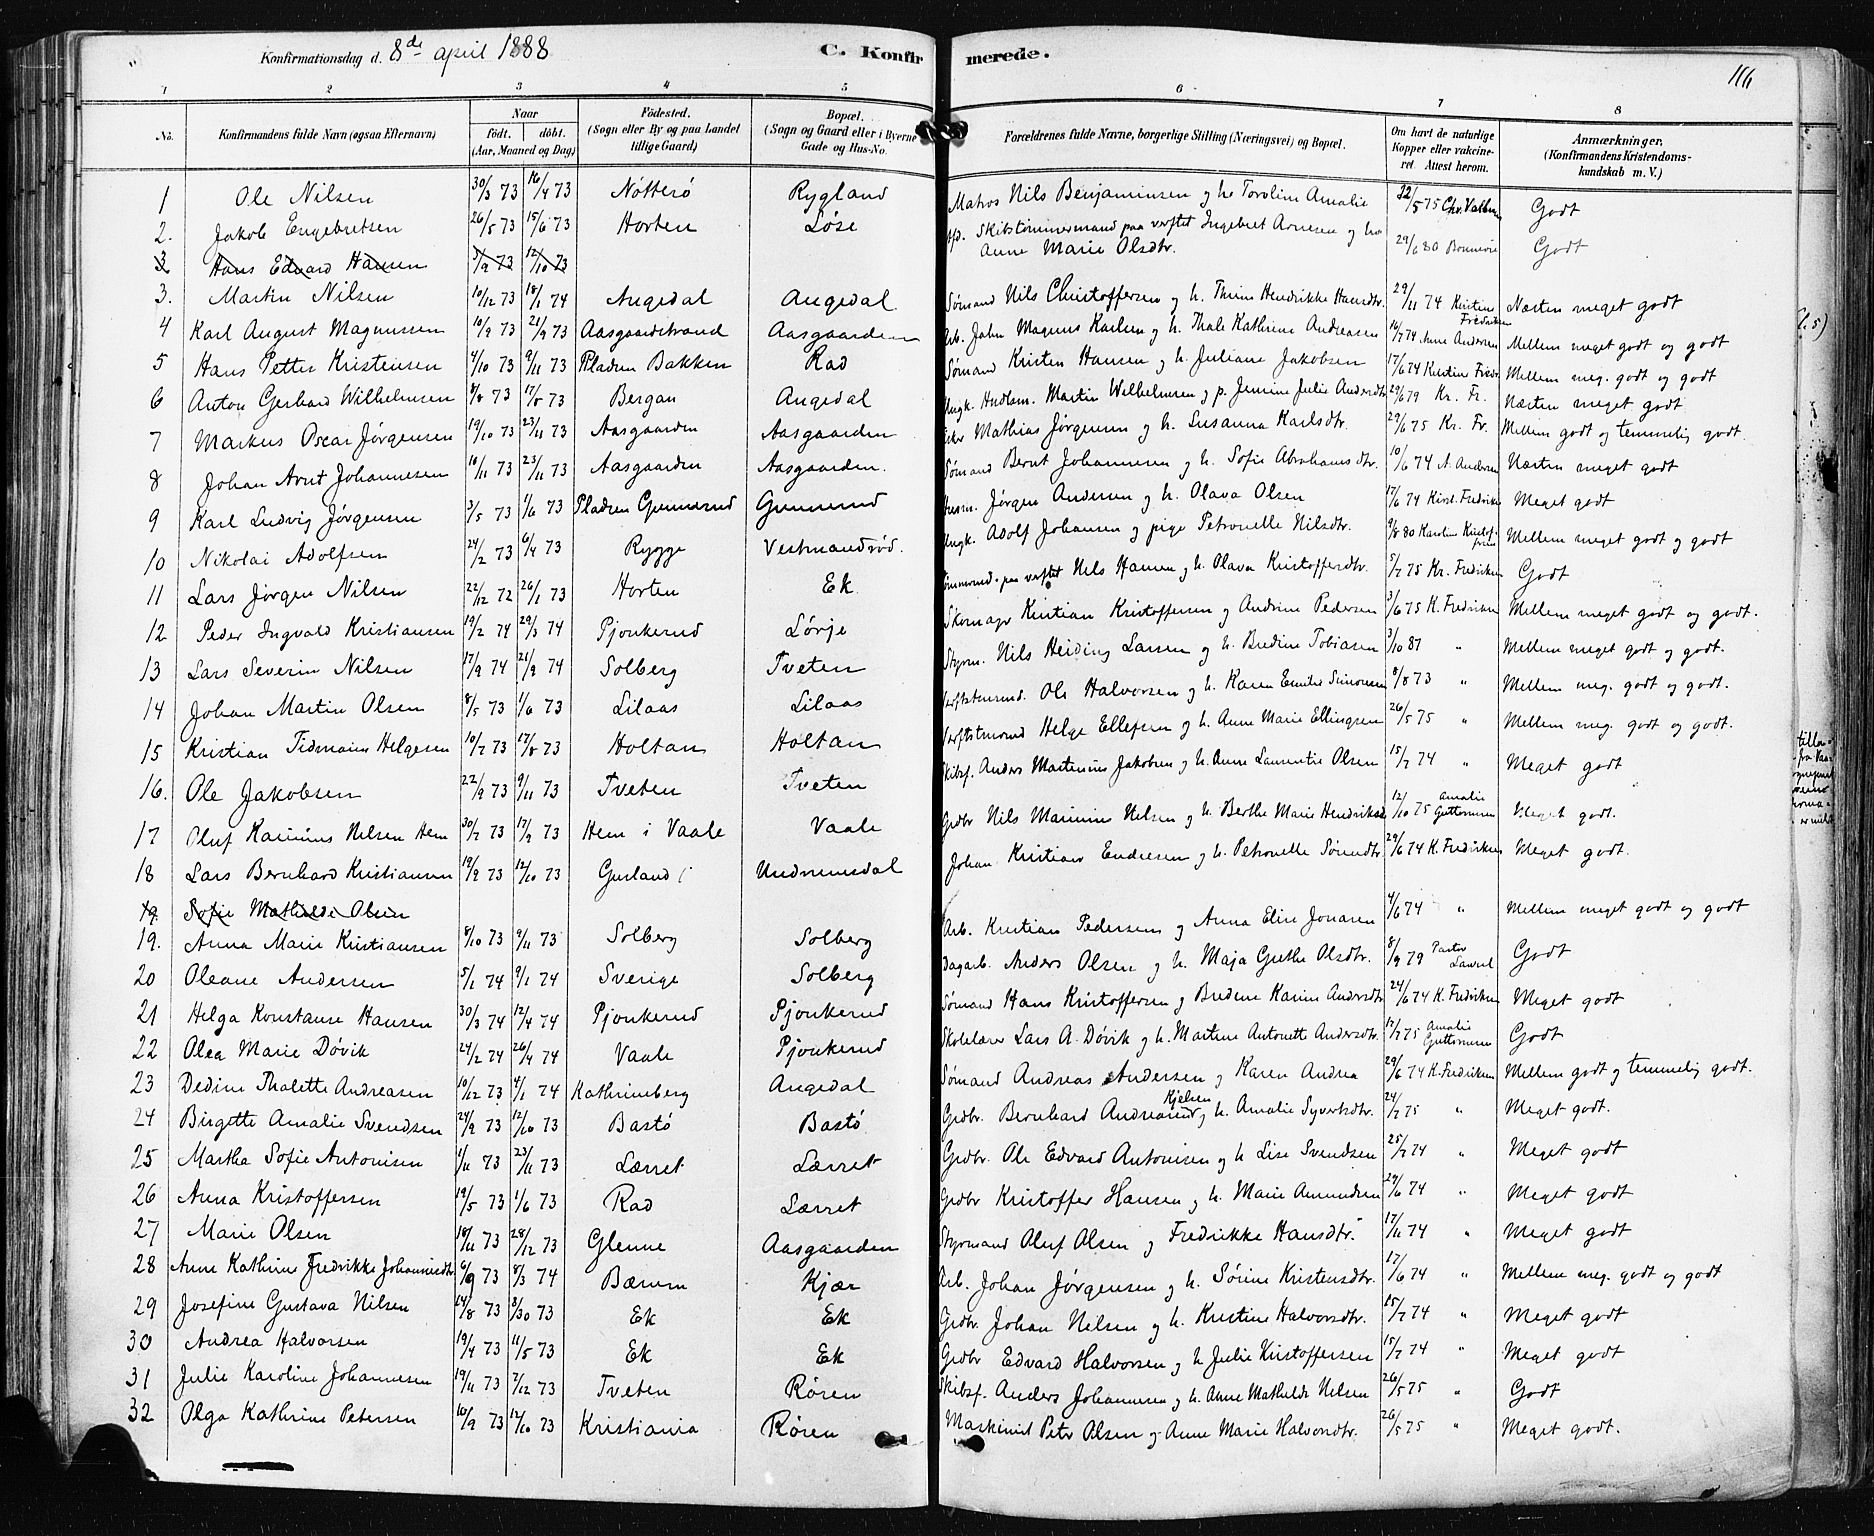 Konfirmationsdag d. 8de april 1888 C. Konfirmerede. 116
1 2 3 4 5 6 7 8
No. Konfirmandens fulde Navn (ogsaa Efternavn) Naar født. døbt. (Aar, Maaned og Dag) Fødested. (Sogn eller By og paa Landet tillige Gaard) Bopæl. (Sogn og Gaard eller i Byerne Gade og Hus-No. Forældrenes fulde Navne, borgerlige Stilling (Næringsvei) og Bopæl. Om havt de naturlige Kopper eller vakcineret. Attest herom. Anmærkninger. (Konfirmandens Kristendomskundskab m. V.)
1 Ole Nilsen 30/3 73 16/4 73 Nötterö Rygland Matros Nils Benjaminsen og h. Toroline Amalie /5 75 Chr. Godt
2. Jakob Engebretsen 26/5 73 15/6 73 Horten Løse Skibstömmermand paa verftet Ingebret Arnesen og h. Anne Marie Olsdtr. 29/6 80 Godt
3 Hans Edvard Hansen 5/9 73 12/10 73
3. Martin Nilsen 10/12 73 18/1 74 Augedal Augedal Sømand Nils Christoffersen og h. Thrine Hendrikke Hansdtr. 29/11 74 Kristine Fredriksen Næsten meget godt
4 Karl August Magnussen 10/9 73 21/9 73 Aasgaardstrand Aasgaarden Arb. John Magnus Karlsen og h. Thale Kathrine Andreasen 16/7 74 Anne Andersen Mellem meget godt og godt
5 Hans Petter Kristensen 4/10 73 9/11 73 Pladsen Bakken Rad Sømand Kristen Hansen og h. Juliane Jakobsen 17/6 74 Kristine Fredr. Mellem meg. godt og godt
6 Anton Gerhard Wilhelmsen 8/8 73 17/8 73 Bergan Augedal Ungk. Martin Wilhelmsen og p. Jemine Julie Andersdtr 29/6 79 Kr. Fr. Næsten meget godt
7 Markus Oscar Jørgensen 19/10 73 23/11 73 Aasgaarden Aasgaarden Mathias Jørgensen og h. Susanna Karlsdtr. 29/6 75 Kr. Fr. Mellem godt og temmelig godt
8 Johan Arnt Johannesen 10/11 73 23/11 73 Aasgaarden Aasgaarden. Sømand Bernt Johannesen og h. Sofie Abrahamsdtr. 10/6 74 A. Andersen Næsten meget godt
9 Karl Ludvig Jørgensen 3/5 73 1/6 73 Pladsen Gunnerud Gunnerud Husm. Jørgen Andersen og h. Olava Olsen 17/6 74 Krist. Fredriksen Meget godt
10 Nikolai Adolfsen 24/2 73 6/4 73 Rygge Vestmandrød. Ungk. Adolf Johansen og pige Petronelle Nilsdtr. 9/8 80 Karoline Mellem meget godt og godt
11 Lars Jørgen Nilsen 22/12 72 26/1 73 Horten Ek. Tømmermd. paa verftet Nils Hansen og h. Olava Kristoffersdtr. 5/7 75 Kr. Fredriksen Godt
12 Peder Ingvald Kristiansen 19/2 74 29/3 74 Pjonkerud Lörje Skomager Kristian Kristoffersen og Andrine Pedersen 3/6 75 K. Fredriksen Mellem meget godt og godt.
13 Lars Severin Nilsen 17/9 74 21/9 74 Solberg Tveten Styrm. Nils Heiding Larsen og h. Bredine Tobiasen 3/10 87 " Mellem meget godt og godt.
14 Johan Martin Olsen 8/5 73 1/6 73 Lilaas Lilaas Ole Halvorsen og h. Karen Emilie Simonsen 8/8 73 " Mellem meg. godt og godt.
15 Kristian Tidmann Helgesen 10/7 73 17/8 73 Holtan Holtan Helge Ellefsen og h. Anne Marie Ellingsen 26/5 75 " Mellem meg. godt og godt.
16. Ole Jakobsen 22/9 73 9/11 73 Tveten Tveten Skibsf. Anders Martenius Jakobsen og h. Anne Laurentie Olsen 15/7 74 " Meget godt
17 Oluf Karinius Nilsen Hem 30/7 73 17/9 73 Hem i Vaale Vaale Grdbr Nils Marinius Nilsen og h. Berthe Marie Hendriksd. 12/10 75 Amalie Guttormsen Meget godt.
18 Lars Bernhard Kristiansen 19/9 73 12/10 73 Gusland Undrumsdal Johan Kristian Endresen og h. Petronelle 29/6 74 K. Fredriksen Meget godt.
19. Sofie Mathilde Olsen
19. Anna Marie Kristiansen 8/10 73 9/11 73 Solberg Solberg Arb. Kristian Pedersen og Anna Elise Jonasen 4/6 74 " Mellem meget godt og godt
20 Oleane Andersen 5/1 74 9/1 74 Sverige Solberg Dagarb. Anders Olsen og h. Maja Grethe Olsdtr. 8/9 79 Pastor Godt
21 Helga Konstanse Hansen 30/3 74 12/4 74 Pjonkerud Pjonkerud Sømand Hans Kristoffersen og Bredine Karine Andersdtr 24/6 74 K. Fredriksen Meget godt
22 Olea Marie Dövik 24/2 74 26/4 74 Vaale Pjonkerud Skolelærer Lars A. Dövik og h. Martine Antonette Andersdtr. 17/7 75 Amalie Guttormsen Godt
23 Dedine Thalette Andreasen 10/12 73 4/1 74 Kathrineberg Augedal Sømand Andreas Andersen og Karen Andrea 29/6 74 K. Fredriksen Mellem godt og temmelig godt.
24 Birgette Amalie Svendsen 24/9 73 12/10 73 Bastö Bastö Grdbr. Bernhard Andreasen Kjelsen og h. Amalie Syvertsdtr. 24/7 75 " Meget godt.
25 Martha Sofie Antonisen 1/11 73 23/11 73 Lærret Lærret Grdbr. Ole Edvard Antonisen og h Lise Svendsen 25/7 74 " Meget godt
26 Anna Kristoffersen 19/5 73 1/6 73 Rad Lærret Grdbr Kristoffer Hansen og h. Marie Amundsen 29/6 74 " Meget godt
27 Marie Olsen 18/11 73 28/12 73 Glenne Aasgaarden Styrmand Oluf Olsen og Fredrikke Hansdtr. 17/11 74 " Meget godt
28 Anne Kathrine Fredrikke Johannesdtr 6/9 73 8/3 74 Bærum Kjær Arb. Johan Jørgensen og h. Sörine Kristensdtr. 17/6 74 " Mellem meg. godt og godt
29 Josefine Gustava Nilsen 24/8 73 8/30 73 Ek Ek Grdbr. Johan Nilsen og h. Kristine Halvorsdtr. 25/7 74 " Meget godt
30 Andrea Halvorsen 19/4 73 11/5 73 Ek Ek Grdbr Edvard Halvorsen og h Julie Kristoffersen 15/7 74 " Meget godt
31 Julie Karoline Johannesen 19/11 73 7/12 73 Tveten Røren Skibsf. Anders Johannesen og h. Anne Mathilde Nilsen 26/5 75 " Godt
32 Olga Kathrine Petersen 10/9 73 12/10 73 Kristiania Røren Maskinist Peter Olsen og Anne Marie Halvorsdtr. 26/5 75 " Meget godt.